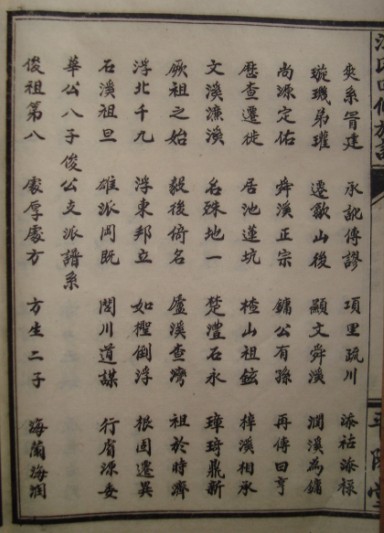 奕系胥建 承訛傳謬 項里疏川 添祜添祿
璇璣弟瓘 遷歙山後 顯文舜溪 潤溪為鏞
尚源定佑 舜溪正宗 鏞公有孫 再傳曰亨
歷查遷徙 居池蓮坑 楂山祖鉉 樟溪相承
文溪濂溪 名殊地一 楚灃石永 璋琦鼎新
厥祖之始 毅後倚名 廬溪查灣 祖於時濟
浮北千九 浮東邦立 如樫倒浮 根固遷異
石溪祖旦 雄派岡既 閃川道謀 行省源委
華公八子俊公支派譜系
俊祖第八 處厚處方 方生二子 海蘭海潤